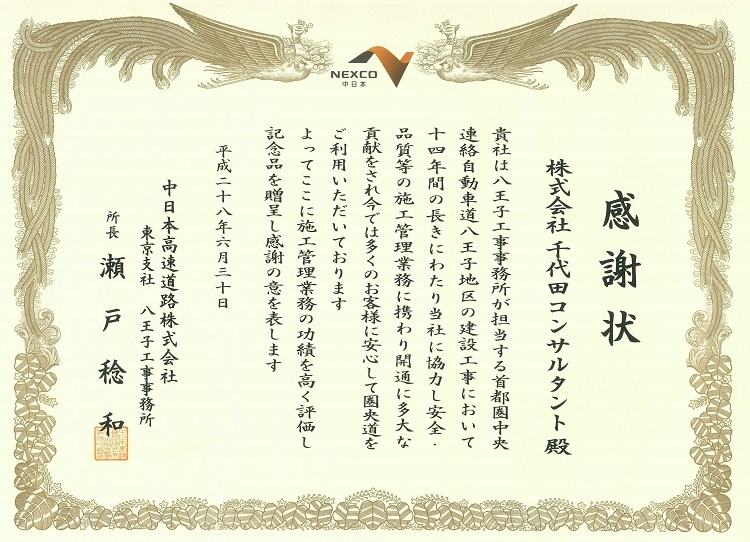 NEXCO
中日本
感謝状
株式会社 千代田コンサルタント 殿
貴社は八王子工事事務所が担当する首都圏中央
連絡自動車道八王子地区の建設工事において
十四年間の長きにわたり当社に協力し安全・
品質等の施工管理業務に携わり開通に多大な
貢献をされ今では多くのお客様に安心して圏央道を
ご利用いただいております
よってここに施工管理業務の功績を高く評価し
記念品を贈呈し感謝の意を表します
平成二十八年六月三十日
中日本高速道路株式会社
東京支社 八王子工事事務所
所長 瀬戸稔和